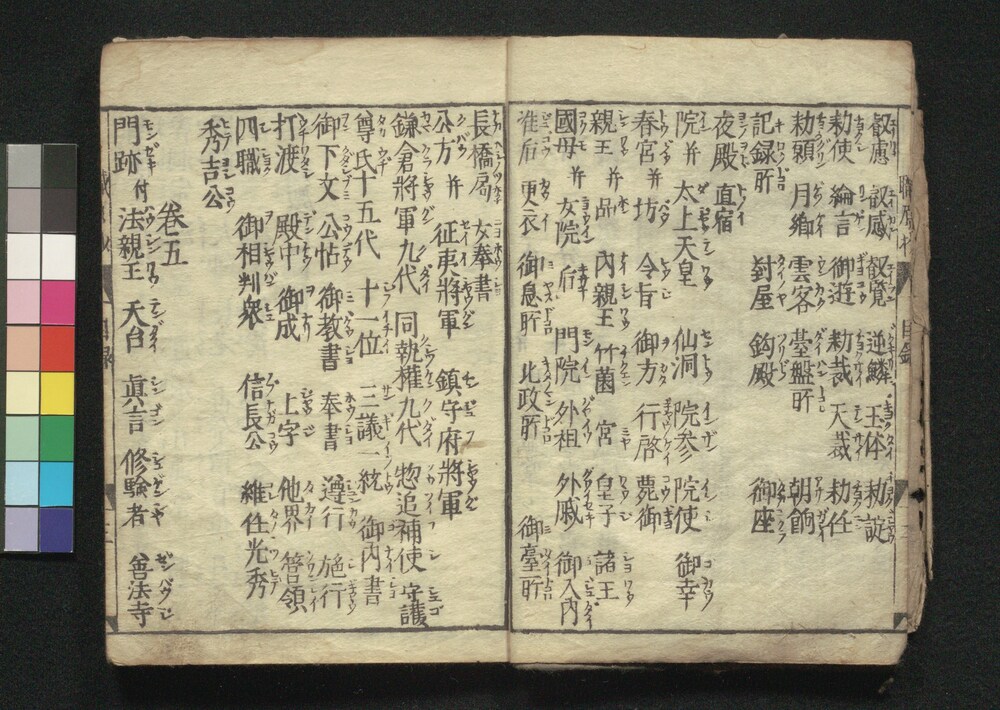 叡慮 叡感 叡覧 逆鱗 玉体 勅諚
勅使 綸言 御遊 勅裁 天裁 勅任
勅願 月郷 雲客 臺盤所 朝餉
記録所 封屋 釣殿 御座
夜殿 直宿
院并 太上天皇 仙洞 院参 院使 御幸
春宮并坊 令旨 御方 行啓 薨御
親王并品 内親王 竹園 宮 皇子 諸王
國母并女院 后 門院 外祖 外戚 御入内
准后 更衣 御息所 北政所 御臺所
長橋局 女奉書
公方并 征夷將軍 鎮守府將軍
鎌倉將軍九代 同執權九代 惣追補使 守護
尊氏十五代 十一位 三議一統 御内書
御下文 公帖 御教書 奉書 遵行 施行
打渡 殿中 御成 上字 他界 管領
四職 御相判衆 信長公 維任光秀
秀吉公
卷五
門跡付法親王 天台 眞言 修験者 善法寺